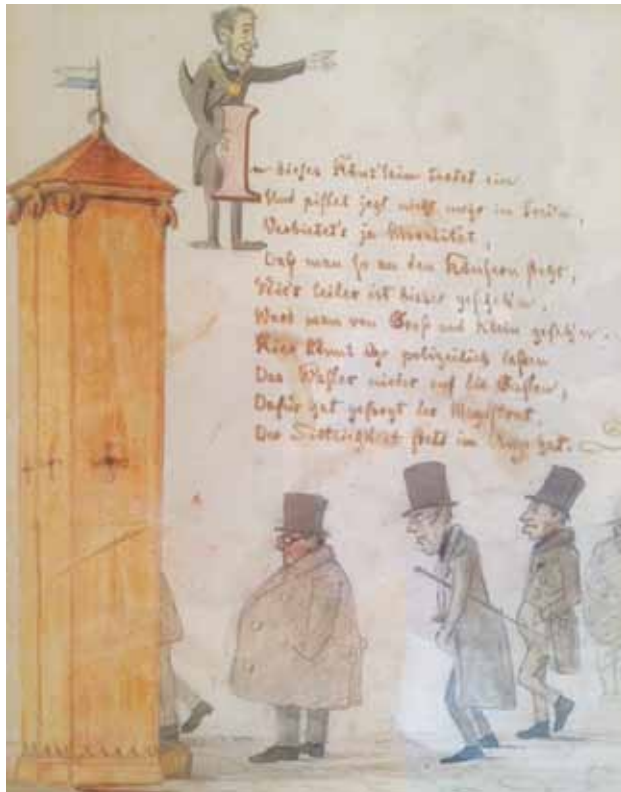 In dieses Häus'lein tretet ein
Und pisset jezt nicht mehr im Frei'n,
Verbietet's ja Moralität,
Daß man so an den Häusern steht,
Wie's leider ist bisher gescheh'n,
Ward man von Groß und Klein geseh'n.
Hier könnt Ihr polizeilich lassen
Das Wasser nieder auf die Gassen,
Dafür hat gesorgt der Magistrat,
Der Sittlichkeit stets im Auge hat.